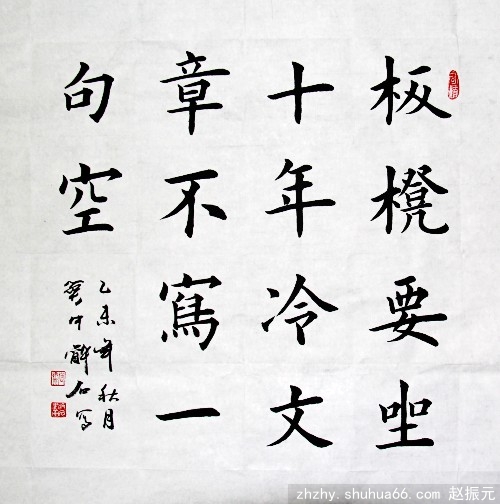 板櫈要坐
十年冷文
章不寫一
句空
乙未年秋月
冀中解石写
zhzhy.shuhua66.com 赵振元